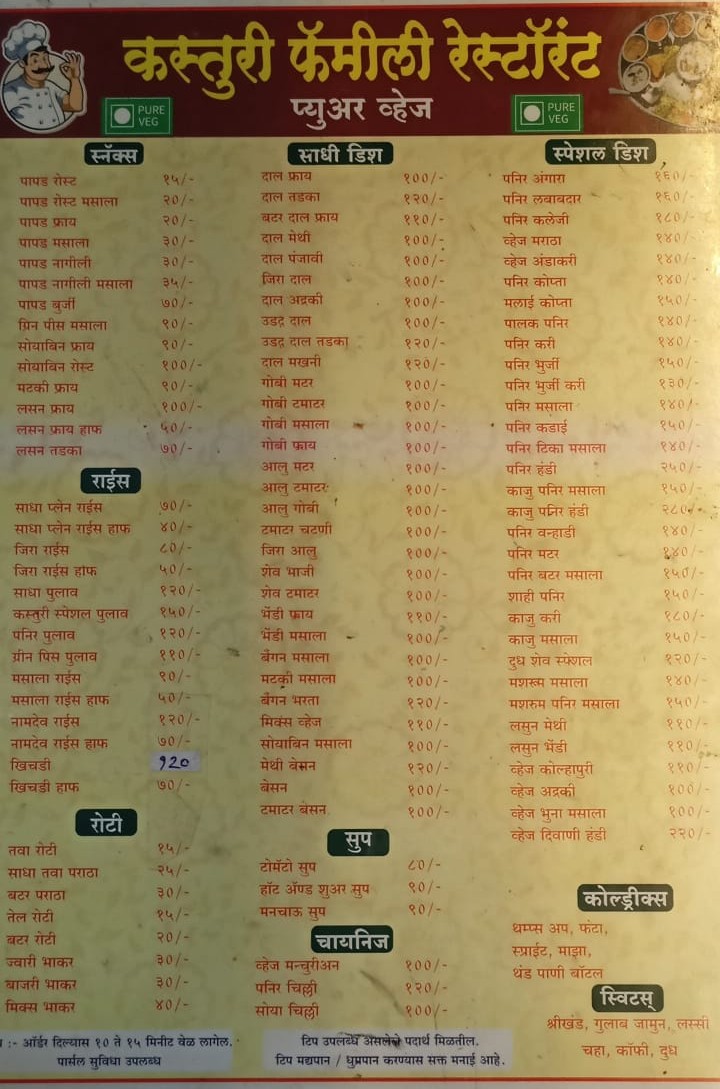 कस्तुरी फॅमीली रेस्टॉरंट
PURE VEG
प्युअर व्हेज
PURE VEG
स्नॅक्स
पापड रोस्ट १५/-
पापड रोस्ट मसाला २०/-
पापड फ्राय २०/-
पापड मसाला ३०/-
पापड नागीली ३०/-
पापड नागीली मसाला ३५/-
पापड बुर्जी ७०/-
ग्रिन पीस मसाला ९०/-
सोयाबिन फ्राय ९०/-
सोयाबिन रोस्ट १००/-
मटकी फ्राय ९०/-
लसन फ्राय १००/-
लसन फ्राय हाफ ५०/-
लसन तडका ७०/-
राईस
साधा प्लेन राईस ७०/-
साधा प्लेन राईस हाफ ४०/-
जिरा राईस ८०/-
जिरा राईस हाफ ५०/-
साधा पुलाव १२०/-
कस्तुरी स्पेशल पुलाव १५०/-
पनिर पुलाव १२०/-
ग्रीन पिस पुलाव ११०/-
मसाला राईस ९०/-
मसाला राईस हाफ ५०/-
नामदेव राईस १२०/-
नामदेव राईस हाफ ७०/-
खिचडी १२०
खिचडी हाफ ७०/-
रोटी
तवा रोटी १५/-
साधा तवा पराठा २५/-
बटर पराठा ३०/-
तेल रोटी १५/-
बटर रोटी २०/-
ज्वारी भाकर ३०/-
बाजरी भाकर ३०/-
मिक्स भाकर ४०/-
साधी डिश
दाल फ्राय १००/-
दाल तडका १२०/-
बटर दाल फ्राय ११०/-
दाल मेथी १००/-
दाल पंजावी १००/-
जिरा दाल १००/-
दाल अद्रकी १००/-
उडद दाल १००/-
उडद दाल तडका १२०/-
दाल मखनी १२०/-
गोबी मटर १००/-
गोबी टमाटर १००/-
गोबी मसाला १००/-
गोबी फ्राय १००/-
आलु मटर १००/-
आलु टमाटर १००/-
आलु गोबी १००/-
टमाटर चटणी १००/-
जिरा आलु १००/-
शेव भाजी १००/-
शेव टमाटर १००/-
भेंडी फ्राय ११०/-
भेंडी मसाला १००/-
बैंगन मसाला १००/-
मटकी मसाला १००/-
बैंगन भरता १२०/-
मिक्स व्हेज ११०/-
सोयाबिन मसाला १००/-
मेथी बेसन १२०/-
बेसन १००/-
टमाटर बेसन १००/-
सुप
टोमॅटो सुप ८०/-
हॉट ॲण्ड शुअर सुप ९०/-
मनचाऊ सुप ९०/-
चायनिज
व्हेज मन्चुरीअन १००/-
पनिर चिल्ली १२०/-
सोया चिल्ली १००/-
स्पेशल डिश
पनिर अंगारा १६०/-
पनिर लबाबदार १६०/-
पनिर कलेजी १८०/-
व्हेज मराठा १४०/-
व्हेज अंडाकरी १४०/-
पनिर कोप्ता १४०/-
मलाई कोप्ता १५०/-
पालक पनिर १४०/-
पनिर करी १४०/-
पनिर भुर्जी १५०/-
पनिर भुर्जी करी १३०/-
पनिर मसाला १४०/-
पनिर कडाई १५०/-
पनिर टिका मसाला १४०/-
पनिर हंडी २५०/-
काजु पनिर मसाला १५०/-
काजु पनिर हंडी २८०/-
पनिर वन्हाडी १४०/-
पनिर मटर १४०/-
पनिर बटर मसाला १५०/-
शाही पनिर १५०/-
काजु करी १८०/-
काजु मसाला १५०/-
दुध शेव स्पेशल १२०/-
मशरूम मसाला १४०/-
मशरूम पनिर मसाला १५०/-
लसुन मेथी ११०/-
लसुन भेंडी ११०/-
व्हेज कोल्हापुरी ११०/-
व्हेज अद्रकी १००/-
व्हेज भुना मसाला १००/-
व्हेज दिवाणी हंडी २२०/-
कोल्ड्रीक्स
थम्प्स अप, फंटा,
स्प्राईट, माझा,
थंड पाणी बॉटल
स्विटस्
श्रीखंड, गुलाब जामुन, लस्सी
चहा, कॉफी, दुध
:- ऑर्डर दिल्यास १० ते १५ मिनीट वेळ लागेल.
पार्सल सुविधा उपलब्ध
टिप उपलब्ध असलेले पदार्थ मिळतील.
टिप मद्यपान / धुम्रपान करण्यास सक्त मनाई आहे.